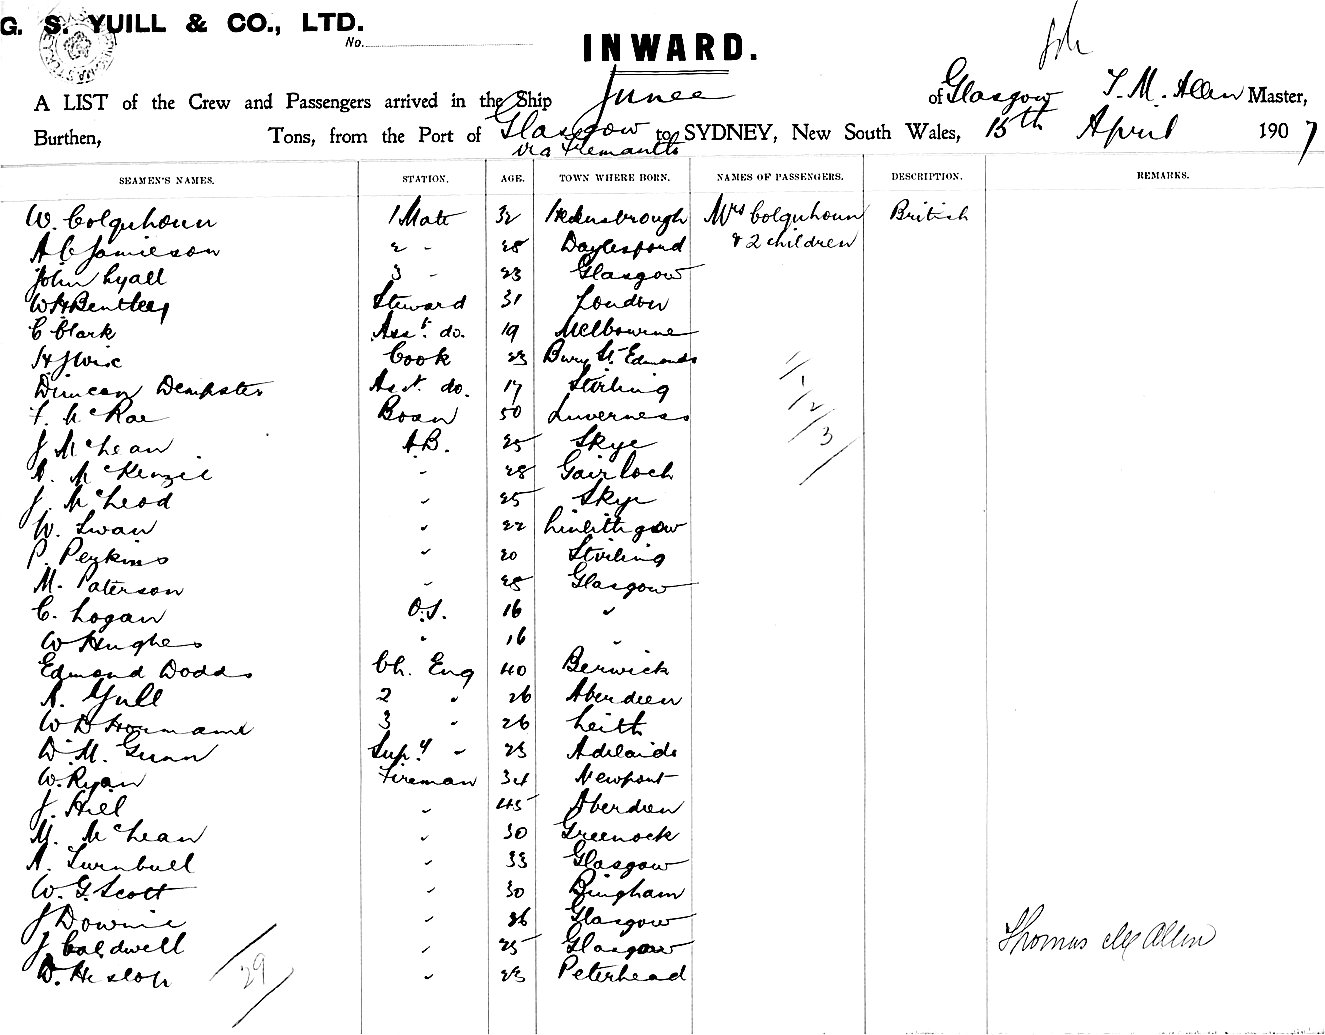 G. S. YUILL & CO., LTD.
No.
INWARD.
A LIST of the Crew and Passengers arrived in the Ship Junee of Glasgow T. M. Allen Master,
Burthen, Tons, from the Port of Glasgow to SYDNEY, New South Wales, 15th April 1907
via Fremantle
SEAMEN'S NAMES. STATION. AGE. TOWN WHERE BORN. NAMES OF PASSENGERS. DESCRIPTION. REMARKS.
W. Colquhoun 1 Mate 32 Mrs Colquhoun British
A C Jamieson 2 " 28 Daylesford & 2 children
John Lyall 3 " 23 Glasgow
W H Bentley Steward 31 London
C Clark Asst. do. 19 Melbourne
Cook 23 Bury St. Edmunds
Duncan Dempster Asst. do. 17 Stirling
F. McRae Bosn 50 Inverness
J McLean A.B. 25 Skye
A. McKenzie " 28 Gairloch
J. McLeod " 25 Skye
W. Swan " 22 Linlithgow
P. Perkins " 20 Stirling
M. Paterson " 28 Glasgow
C. Logan O.S. 16 "
W Hughes " 16 "
Edmond Dodds Ch. Eng 40 Berwick
A. Yull 2 " 26 Aberdeen
W D 3 " 26 Leith
D. M. Gunn Supy " 23 Adelaide
W. Ryan Fireman 34 Newport
J. Hill " 45 Aberdeen
M. McLean " 30 Greenock
A. Turnbull " 33 Glasgow
W. G. Scott " 30 Bingham
J Downie " 26 Glasgow
J. Caldwell " 25 Glasgow
D. Heslop " 23 Peterhead
1
1
2
3
29
Thomas M Allen